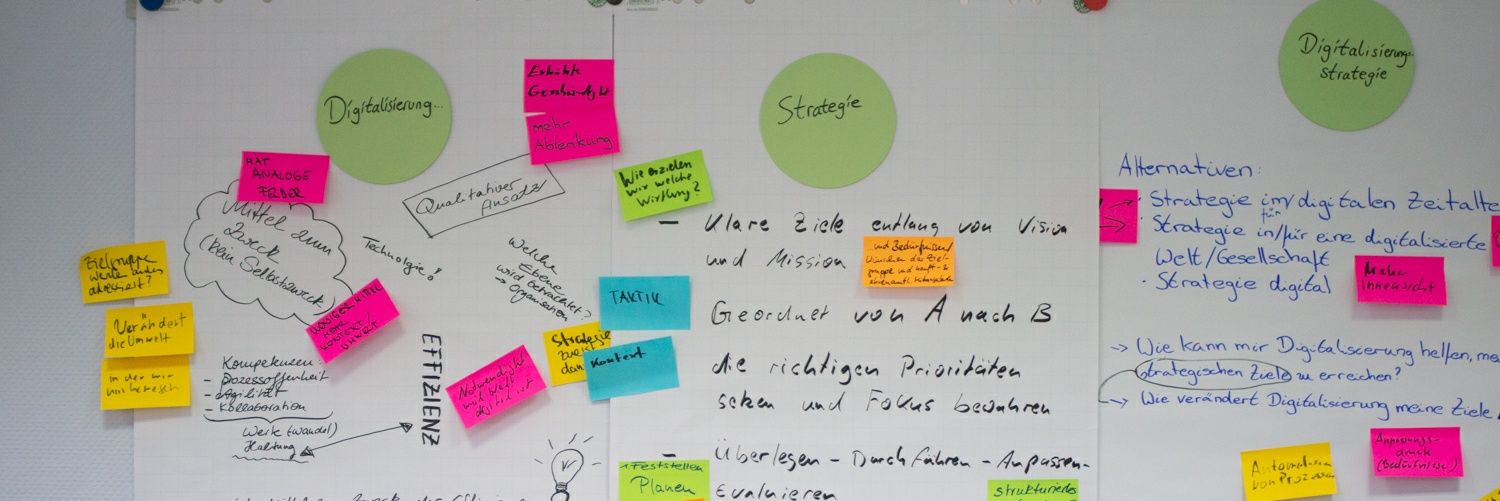 Digitalisierung...
Erhöhte
mehr
Ablenkung
HAT
ANALOGE
FELDER
Mittel zum
Zweck
(kein Selbstzweck)
Qualitativer
Ansatz
Technologie!
Welche
Ebene
wird betrachtet?
→ Organisation
Zielgruppe
adressiert?
Verändert
die Umwelt
in der wir
KONTEXT/
UMWELT
Kompetenzen:
- Prozessoffenheit
- Agilität
- Kollaboration
Werte (wandel)
Haltung
EFFIZIENZ
Notwendigkeit
weil Welt
digital ist
Strategie
Strategie
Wie erzielen
wir welche
Wirkung?
- Klare Ziele entlang von Vision
und Mission
...und Bedürfnissen/
Wünschen der Ziel-
gruppe und
TAKTIK
Kontext
Geordnet von A nach B
die richtigen Prioritäten
setzen und Fokus bewahren
- Überlegen - Durchführen - Anpassen -
Evaluieren
Feststellen
Planen
strukturiertes
Digitalisierungs-
strategie
Alternativen:
· Strategie im digitalen Zeitalte
für
· Strategie in/für eine digitalisierte
Welt/Gesellschaft
· Strategie digital
Mehr
Innensicht
→ Wie kann mir Digitalisierung helfen, me
strategischen Ziele zu erreichen?
→ Wie verändert Digitalisierung meine Ziele
von Prozessen
Anpassungs-
druck
(Bedürfnisse)